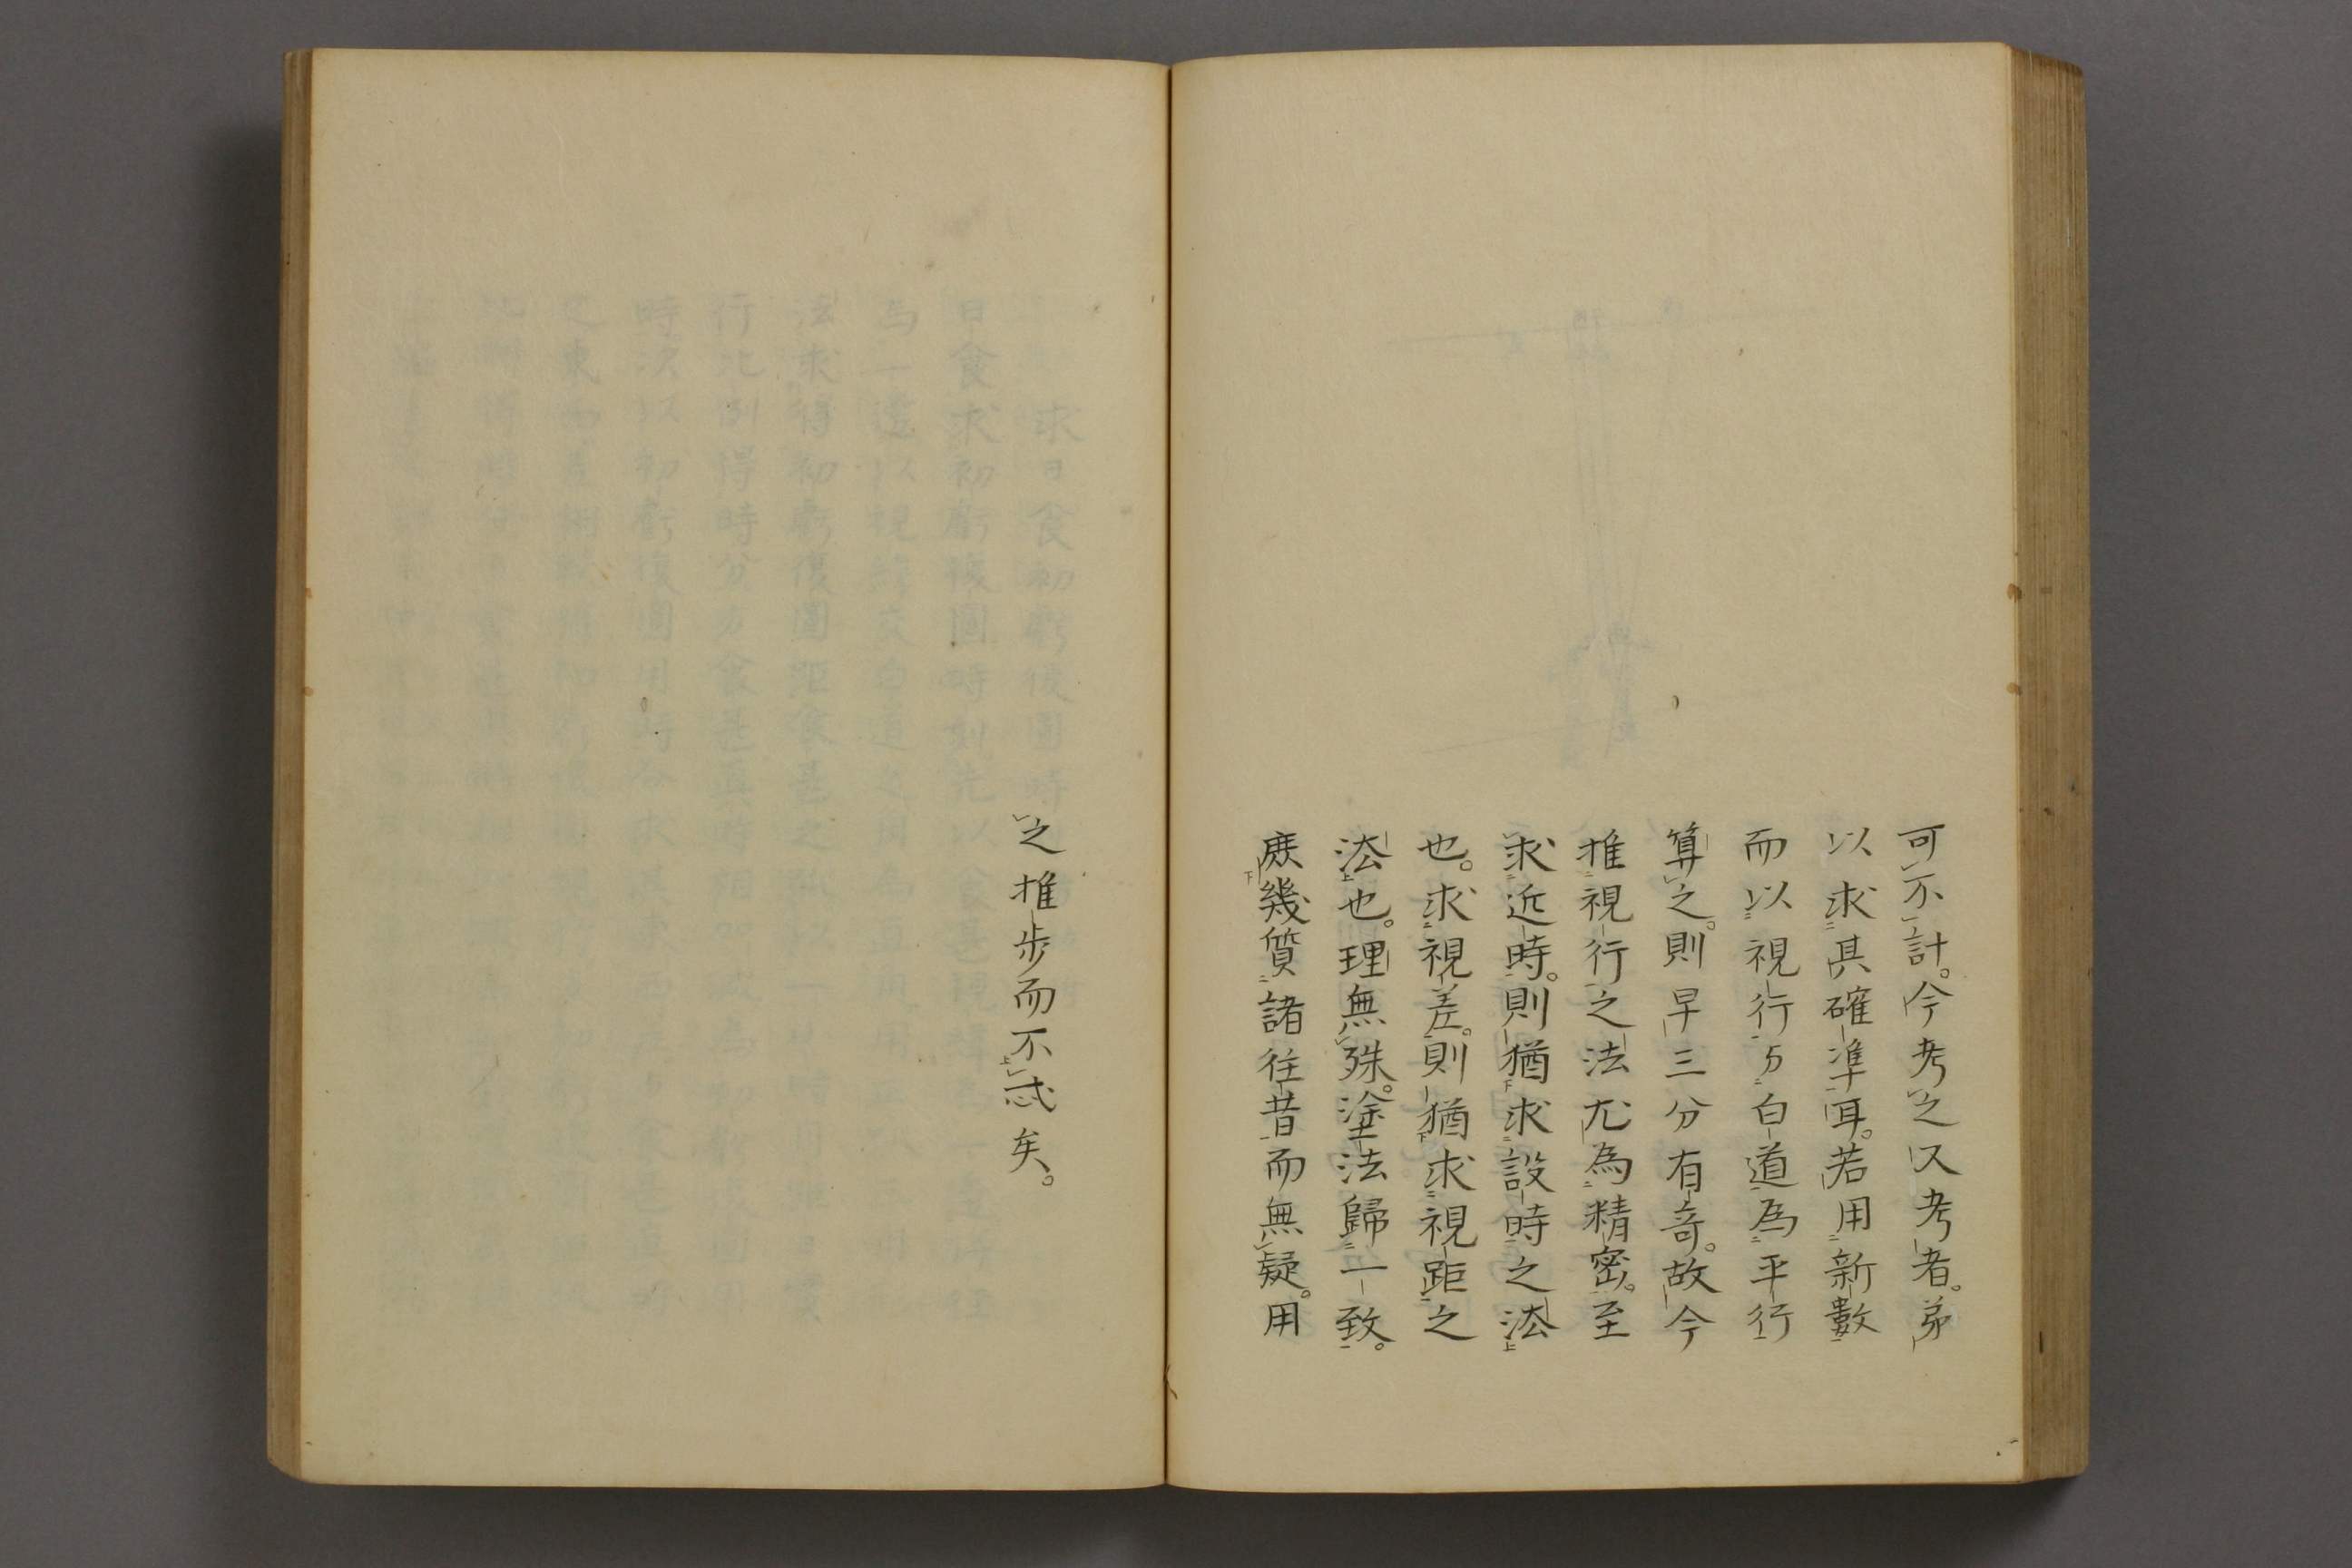 可不計。今考之又考者。弟
以求其確準耳。若用新數
而以視行與白道為平行
算之。則早三分有奇。故今
推視行之法尤為精密。至
求近時。則猶求設時之法
也。求視差。則猶求視距之
法也。理無殊塗法歸一致。
庶幾質諸往昔而無疑。用
之推步而不忒矣。